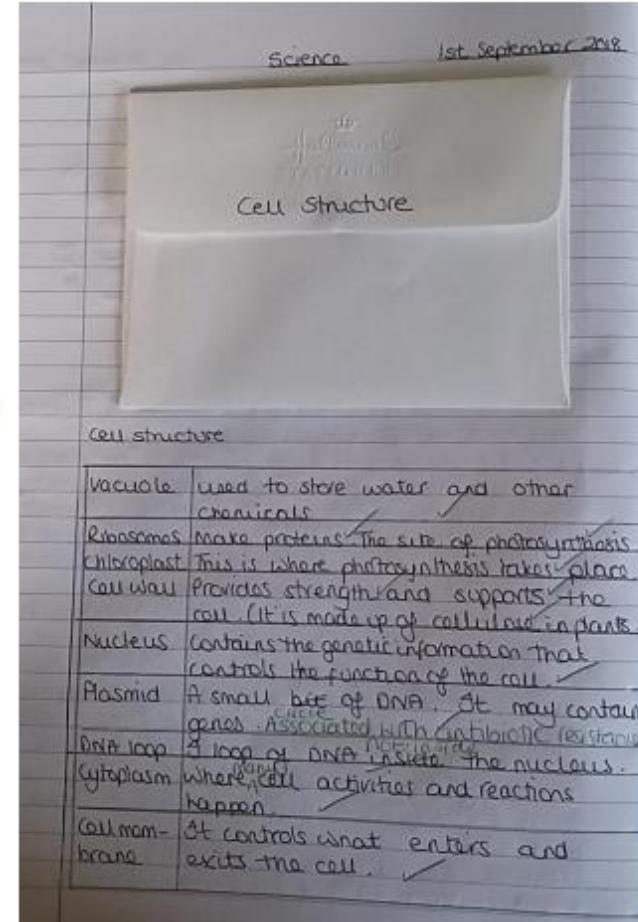 Science 1st September 2018
Hallmark
Cell Structure
Cell structure
Vacuole used to store water and other
chemicals
Ribosomes Make proteins. The site of photosynthesis
Chloroplast This is where photosynthesis takes place
Cell Wall Provides strength and supports the
cell. (It is made up of cellulose in plants.
Nucleus Contains the genetic information that
controls the function of the cell.
Plasmid A small bit of DNA. It may contain
circle
genes. Associated with antibiotic resistance
DNA loop A loop of DNA inside the nucleus.
many
Cytoplasm Where cell activities and reactions
happen.
Cell mem-
brane It controls what enters and
exits the cell.